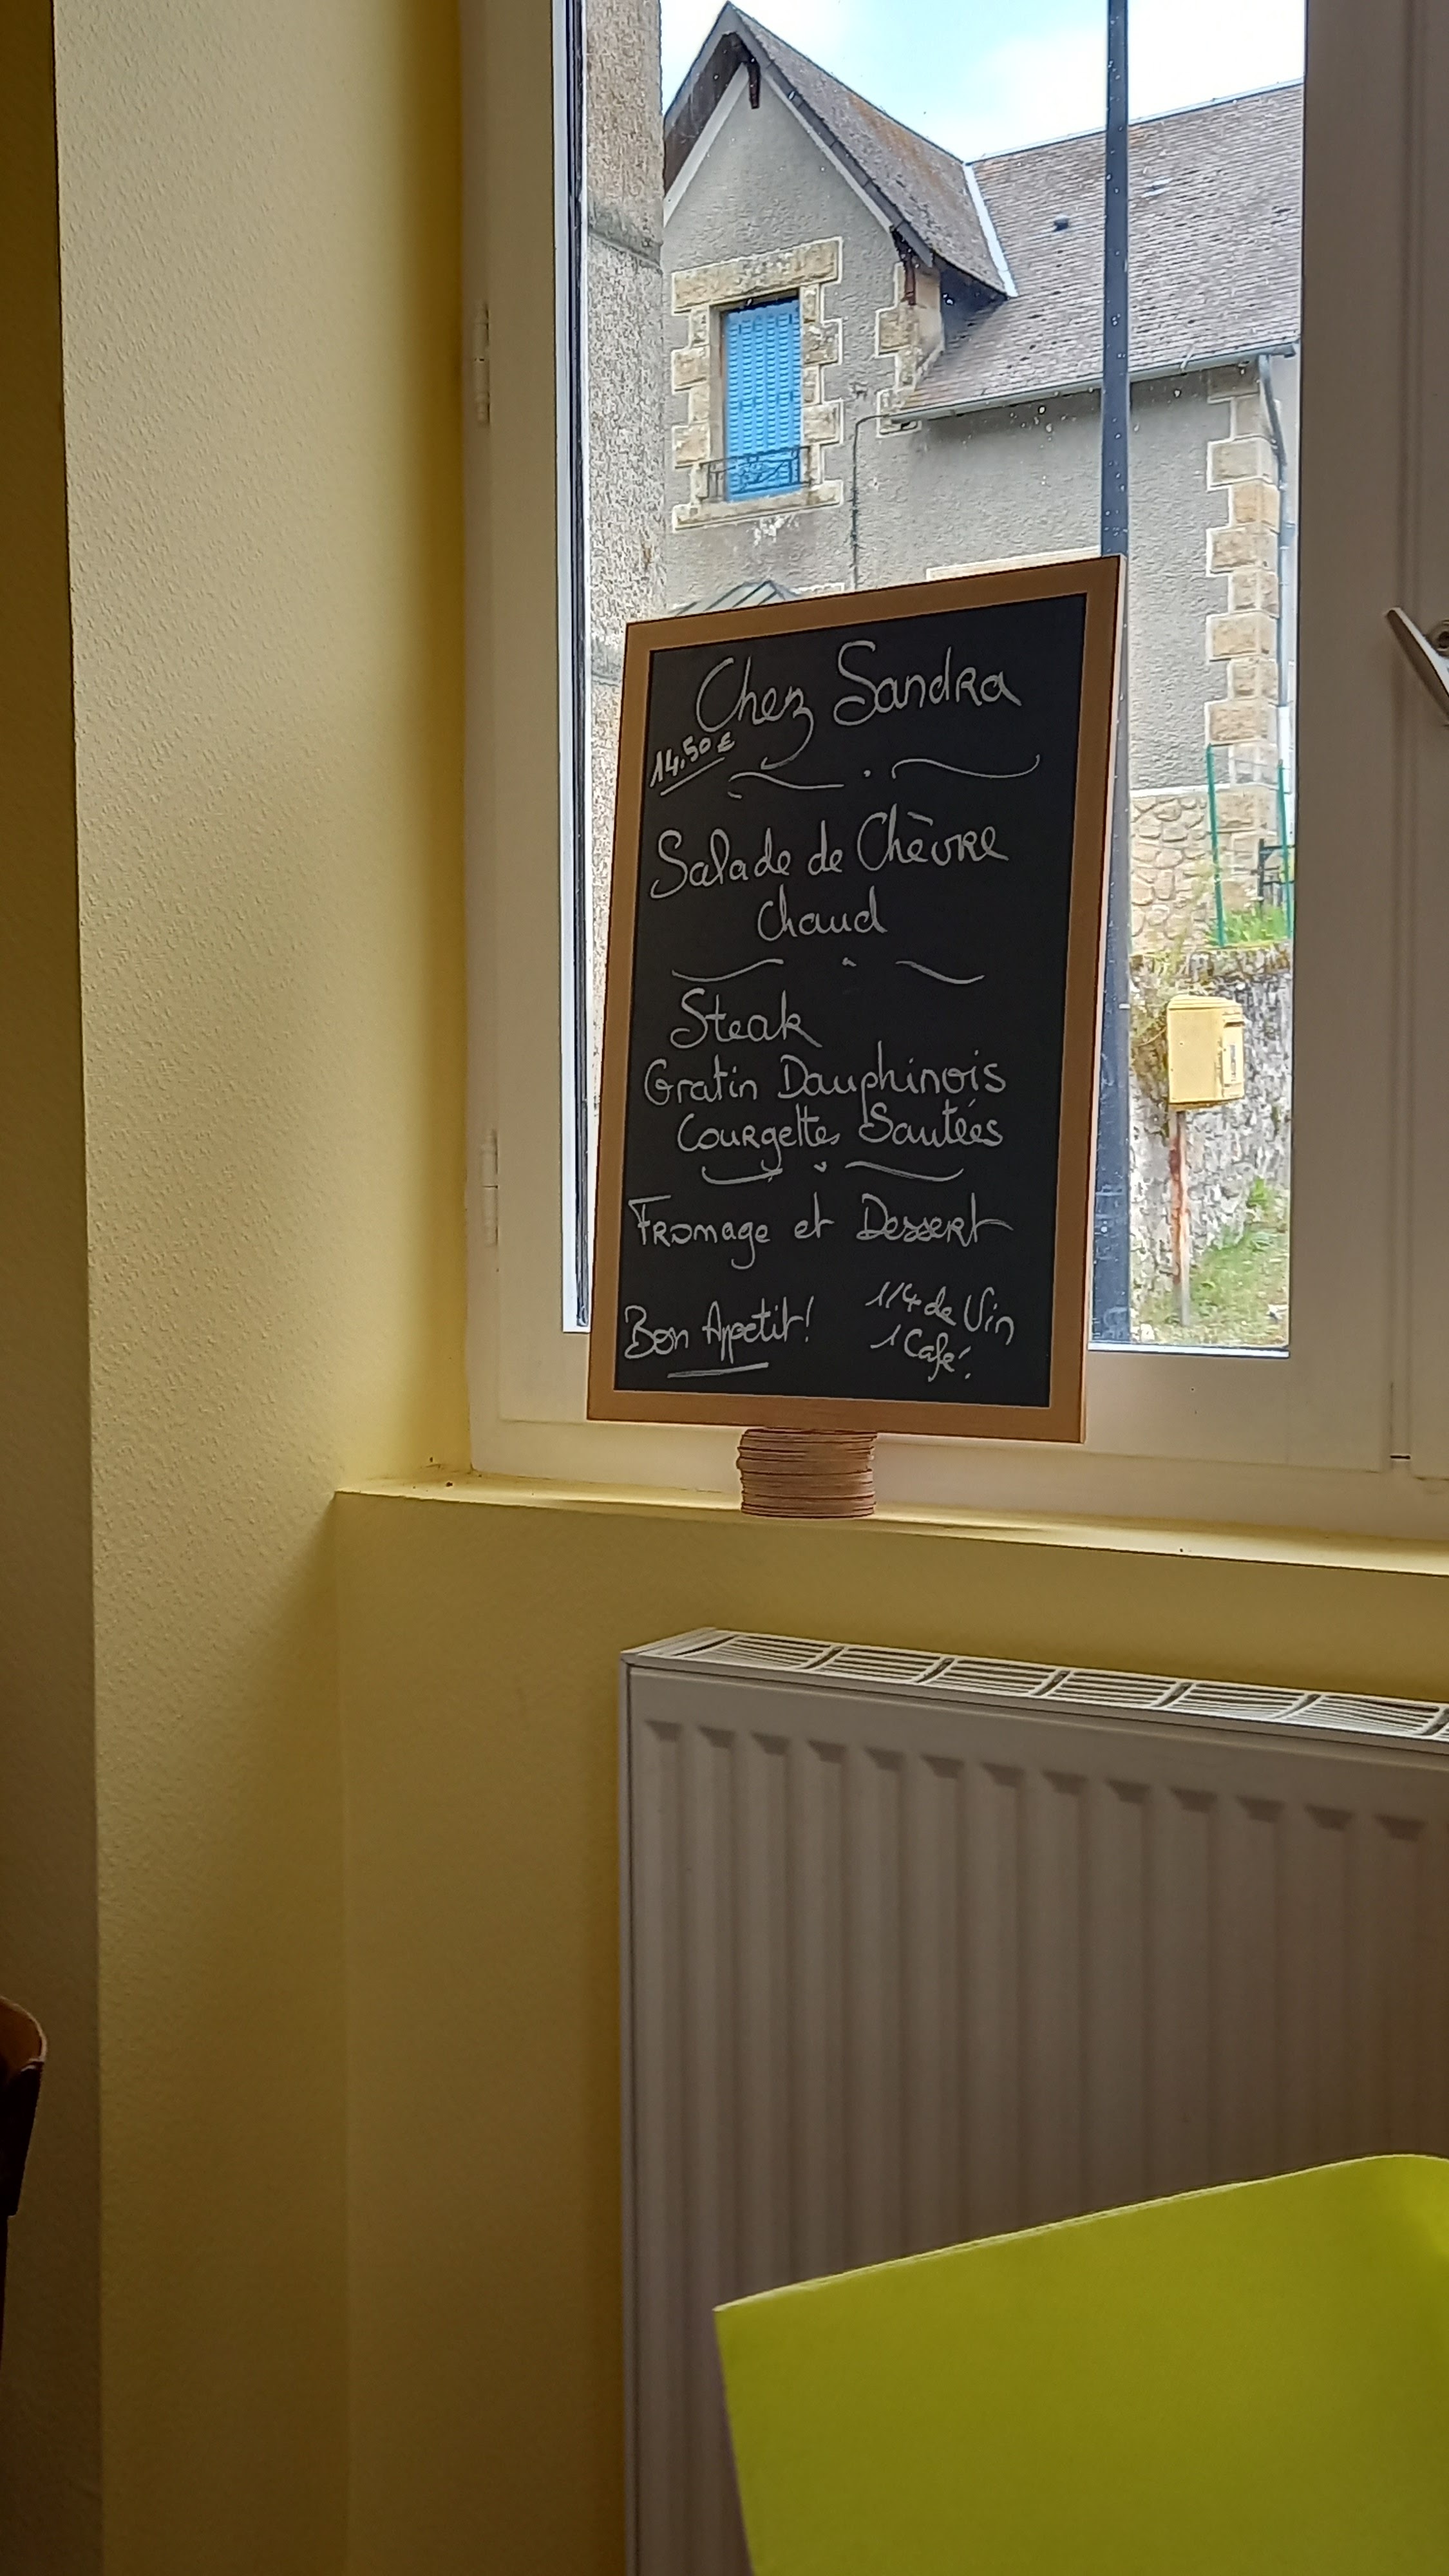 Chez Sandra
14.50 €
Salade de Chèvre
Chaud
Steak
Gratin Dauphinois
Courgettes Sautées
Fromage et Dessert
Bon Appetit!
1/4 de Vin
1 Café.